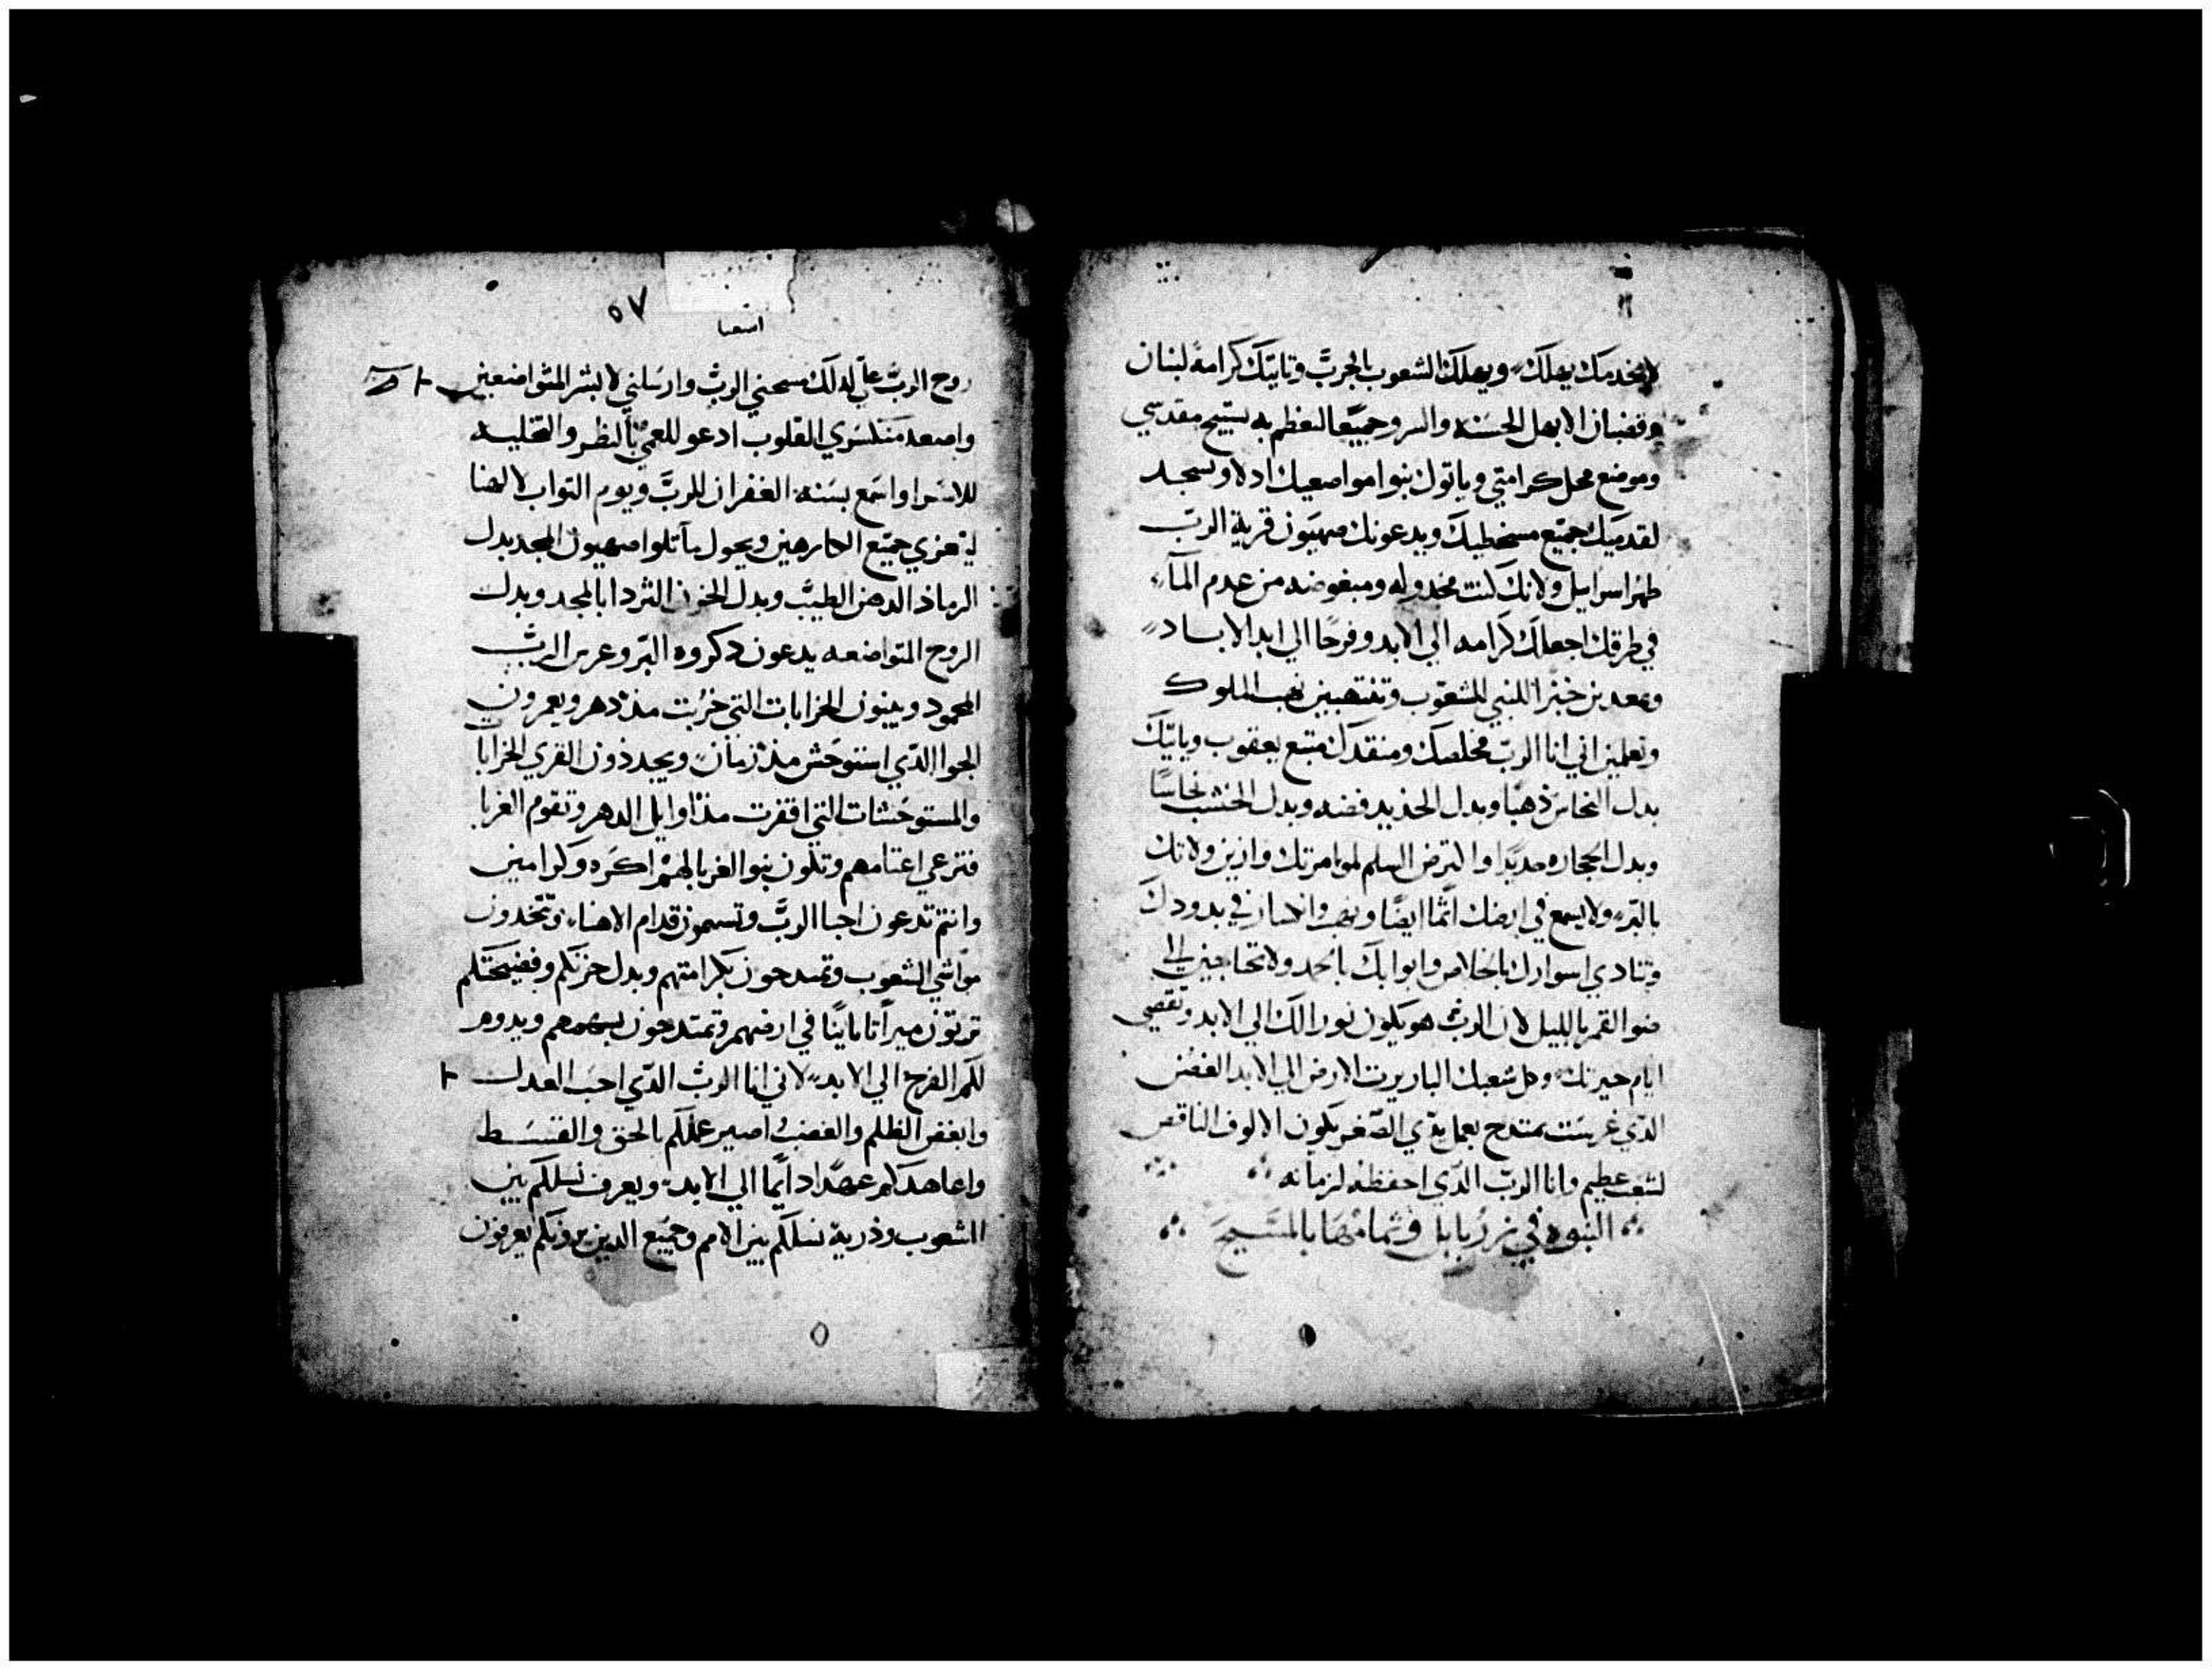 لا يخدمك يهلك ويهلك الشعوب بالجرب وتاتيك كرامة لبنان
وقضبان الابهل الحسنه والسرو جميعا لتعظم به سبيح مقدسي
وموضع محل كرامتي وياتوك بنوا مواضعيك ادلا وتسجد
لقدميك جميع مسخطيك ويدعونك صهيون قرية الرب
طهر اسراييل ولانك كنت مخدوله ومبغوضه من عدم المآء
في طرقك اجعلك كرامه الي الابد وفرحا الي ابد الاباد
اللبني الشعوب وتنتهبين نهب الملوك
وتعلمين اني انا الرب مخلصك ومنقدك متبع يعقوب وياتيك
بدل النحاس ذهبا وبدل الحديد فضه وبدل الخشب نحاسا
وبدل الحجاره حديدا والترض السلم لموامرتك وازين ولاتك
بالبر ولا يسمع في ارضك اثما ايضا ونهب وانكسار في بدودك
وتنادي اسوارك بالخلاص وابوابك بالحمد ولا تحتاجين الي
ضوا القمر بالليل لان الرب هو يكون نورا لك الي الابد وتقضي
ايام حيرتك وكل شعبك البار يرث الارض الي الابد الغصن
الدي غرست يمتدح بعمل يدي الصغر يكون الالوف الناقص
لشعب عظيم وانا الرب الدي احفظه لزمانه
النبوه في زربابل وتمامها بالمسيح
٥٧
اشعيا
روح الرب علي لدلك مسحني الرب وارسلني لابشر المتواضعين
واصعد منكسري القلوب ادعو للعمي بالنظر والتخليه
للاسرا واسمع بسنة الغفران للرب ويوم التواب لالهنا
ليعزي جميع الكارهين ويحول باتلوا صهيون المجد بدل
الرماد الدهن الطيب وبدل الحزن التردا بالمجد وبدل
الروح المتواضعه يدعون دكروه البر وغرس الرب
المحمود ويبنون الخرابات التي خربت مند دهر ويعمرون
الجوا الدي استوحش مند زمان ويجددون القري الخرابا
والمستوحشات التي اقفرت مند اوايل الدهر وتقوم الغربا
فترعي اغنامهم وتكون بنوا الغربا لهم اكره وكرامين
وانتم تدعون احبا الرب وتسمون قدام الاهنا وتتخدون
مواشي الشعوب وتمتدحون بكرامتهم وبدل حزنكم وفضيحتكم
ترتون ميراتا باينا في ارضهم وتمتدحون بسهمهم ويدوم
لكم الفرح الي الابد لاني انا الرب الدي احب العدل
وابغض الظلم والغضب اصير عملكم بالحق والقسط
واعاهدكم عهدا دايما الي الابد ويعرف نسلكم بين
الشعوب وذرية نسلكم بين الامم وجميع الدين يرونكم يعرفون